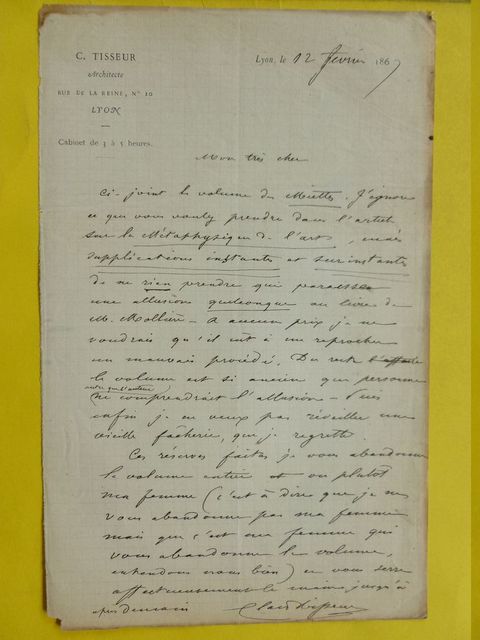 C. TISSEUR
Architecte
RUE DE LA REINE, Nº 10
LYON
Cabinet de 3 à 5 heures.
Lyon, le 12 février 1867
Mon très cher
Ci-joint le volume des Miettes. J'ignore
ce que vous voulez prendre dans l'article
sur la Métaphysique de l'art, mais
supplications instantes et surinstantes
de ne rien prendre qui paraisse
une allusion quelconque au livre de
M. Mollière – A aucun prix je ne
voudrais qu'il eût à me reprocher
un mauvais procédé. Du reste
le volume est si ancien que personne
autre que l'auteur
ne comprendrait l'allusion –
enfin je ne veux pas réveiller une
vieille fâcherie, que je regrette.
Ces réserves faites je vous abandonne
le volume entier et ou plutôt
ma femme (c'est à dire que je ne
vous abandonne pas ma femme
mais que c'est ma femme qui
vous abandonne le volume,
entendons nous bien) et vous serre
affectueusement la main jusqu'à
après demain
Clair Tisseur